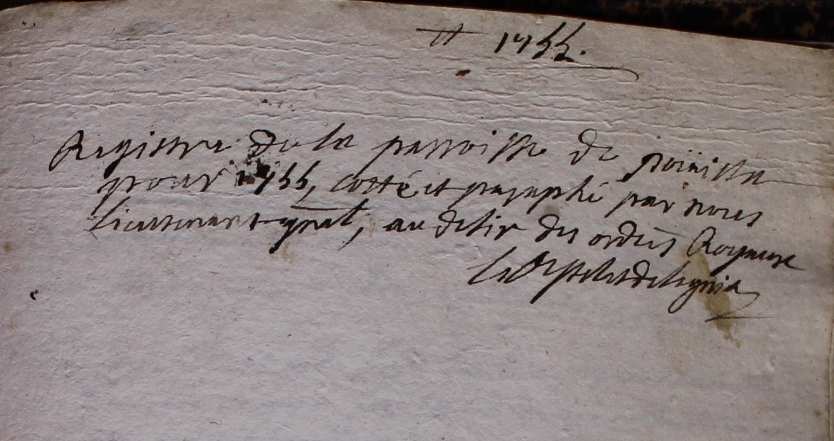 1755.
Registre de la parroisse de
pour 1755, cotté et paraphé par nous
Lieutenant gnãl, au desir des ordres Royaux